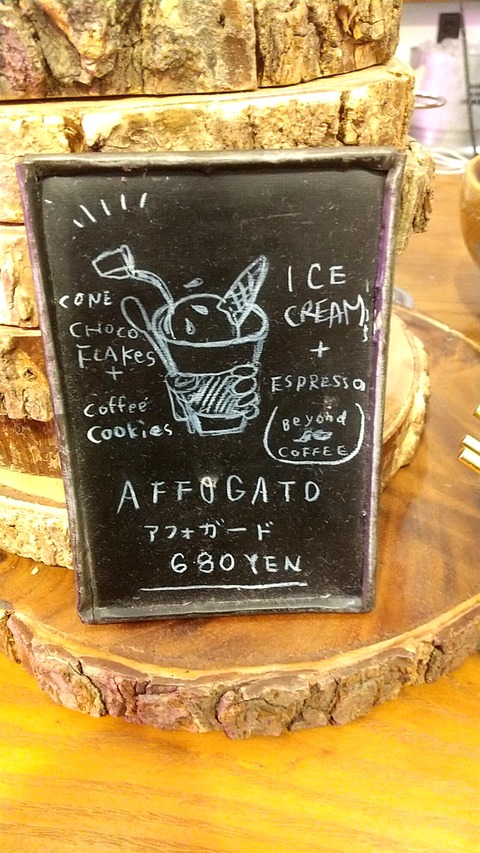 CONE
CHOCO
FLAKES
+
Coffee
Cookies
ICE
CREAM
+
ESPRESSO
Beyond
COFFEE
AFFOGATO
アフォガード
680YEN